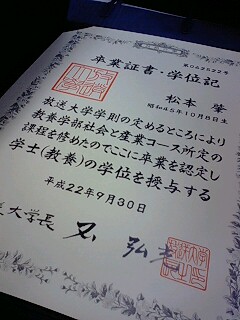 第063522号
卒業証書・学位記
松本 肇
昭和45年10月8日生
放送大学学則の定めるところにより
教養学部社会と産業コース所定の
課程を修めたのでここに卒業を認定し
学士(教養)の学位を授与する
平成22年9月30日
大学長
弘